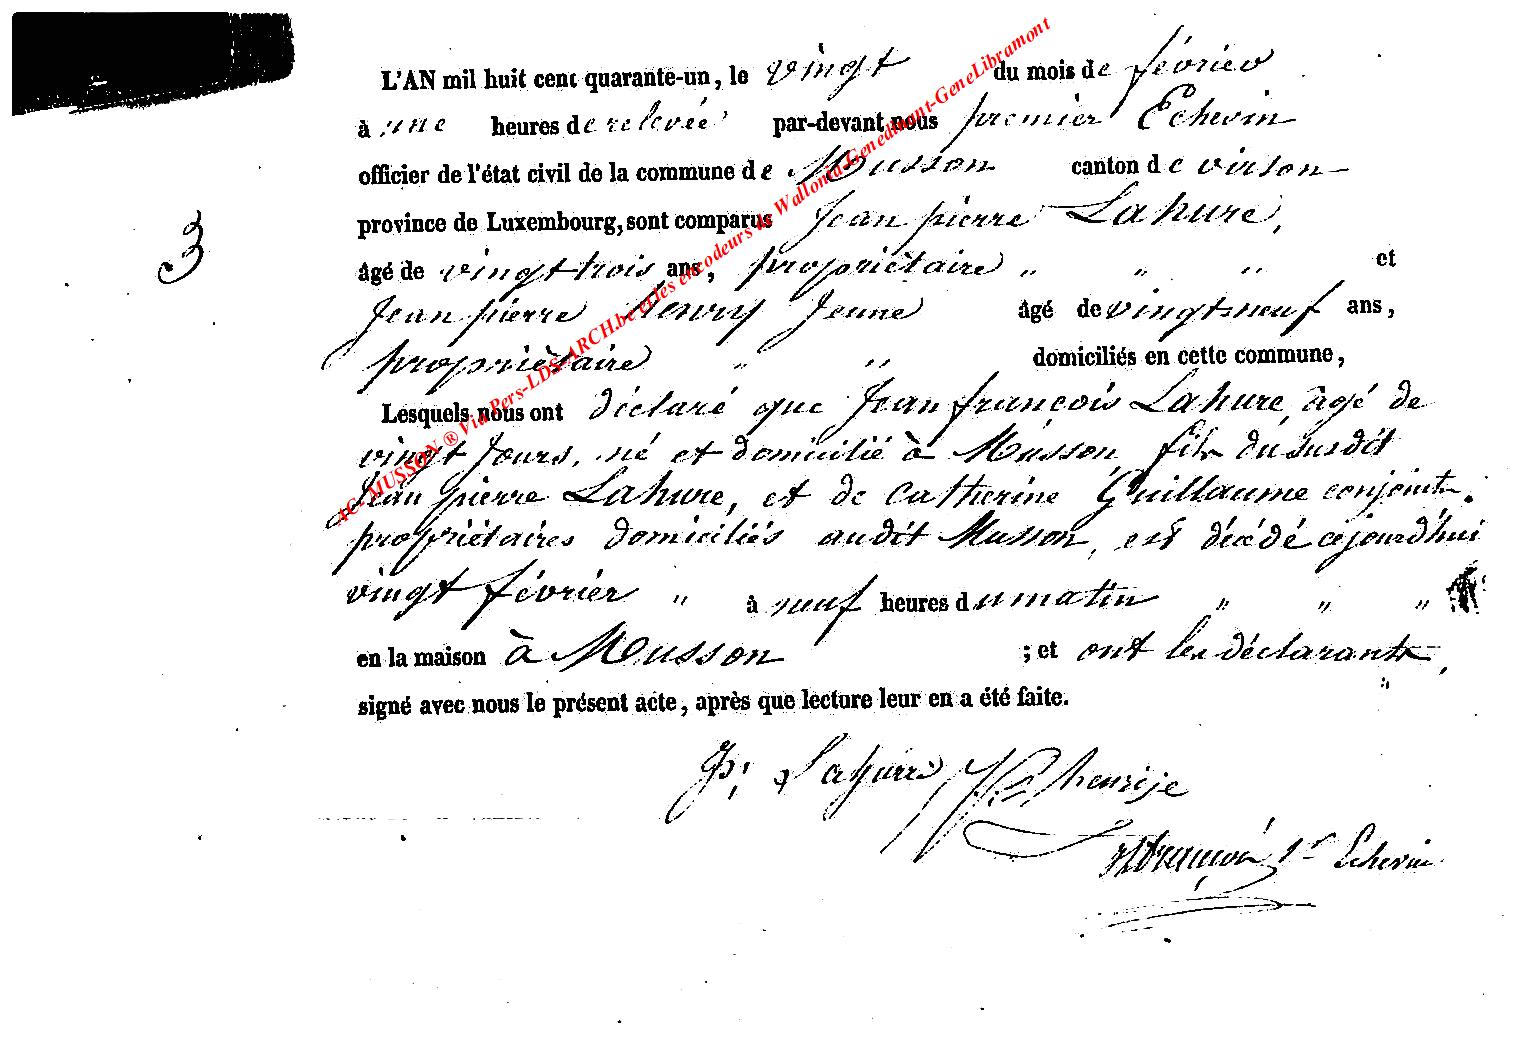 L'AN mil huit cent quarante-un, le vingt du mois de février
à une heures de relevée par-devant nous premier Echevin
officier de l'état civil de la commune de Musson canton de virton
province de Luxembourg, sont comparus Jean pierre Lahure,
âgé de vingt trois ans, propriètaire " " " et
3
Jean pierre henry Jeune âgé de vingt-neuf ans,
propriètaire " " domiciliés en cette commune,
Lesquels nous ont déclaré que Jean françois Lahure, âgé de
vingt Jours, né et domicilié à Musson, fils du susdit
Jean pierre Lahure, et de Catherine Guillaume conjoints.
propriétaires domiciliés audit Musson, est décédé cejourd'hui
vingt février " à neuf heures du matin " " "
en la maison à Musson ; et ont les déclarants,
signé avec nous le présent acte, après que lecture leur en a été faite.
1er Echevin
AC-MUSSON ® Via Pers-LDS-ARCH.be et les encodeurs de Wallonia-Genedinant-GeneLibramont